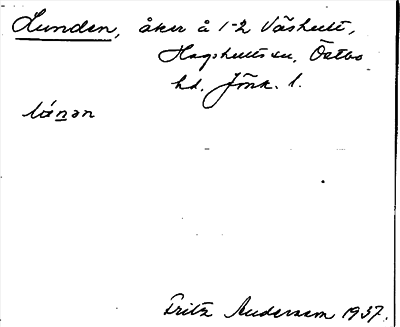 Lunden, åker å 1-2 Våshult,
Hagshults sn, Östbo
hd. Jönk. l.
lúnən
Fritz Andersson 1937.